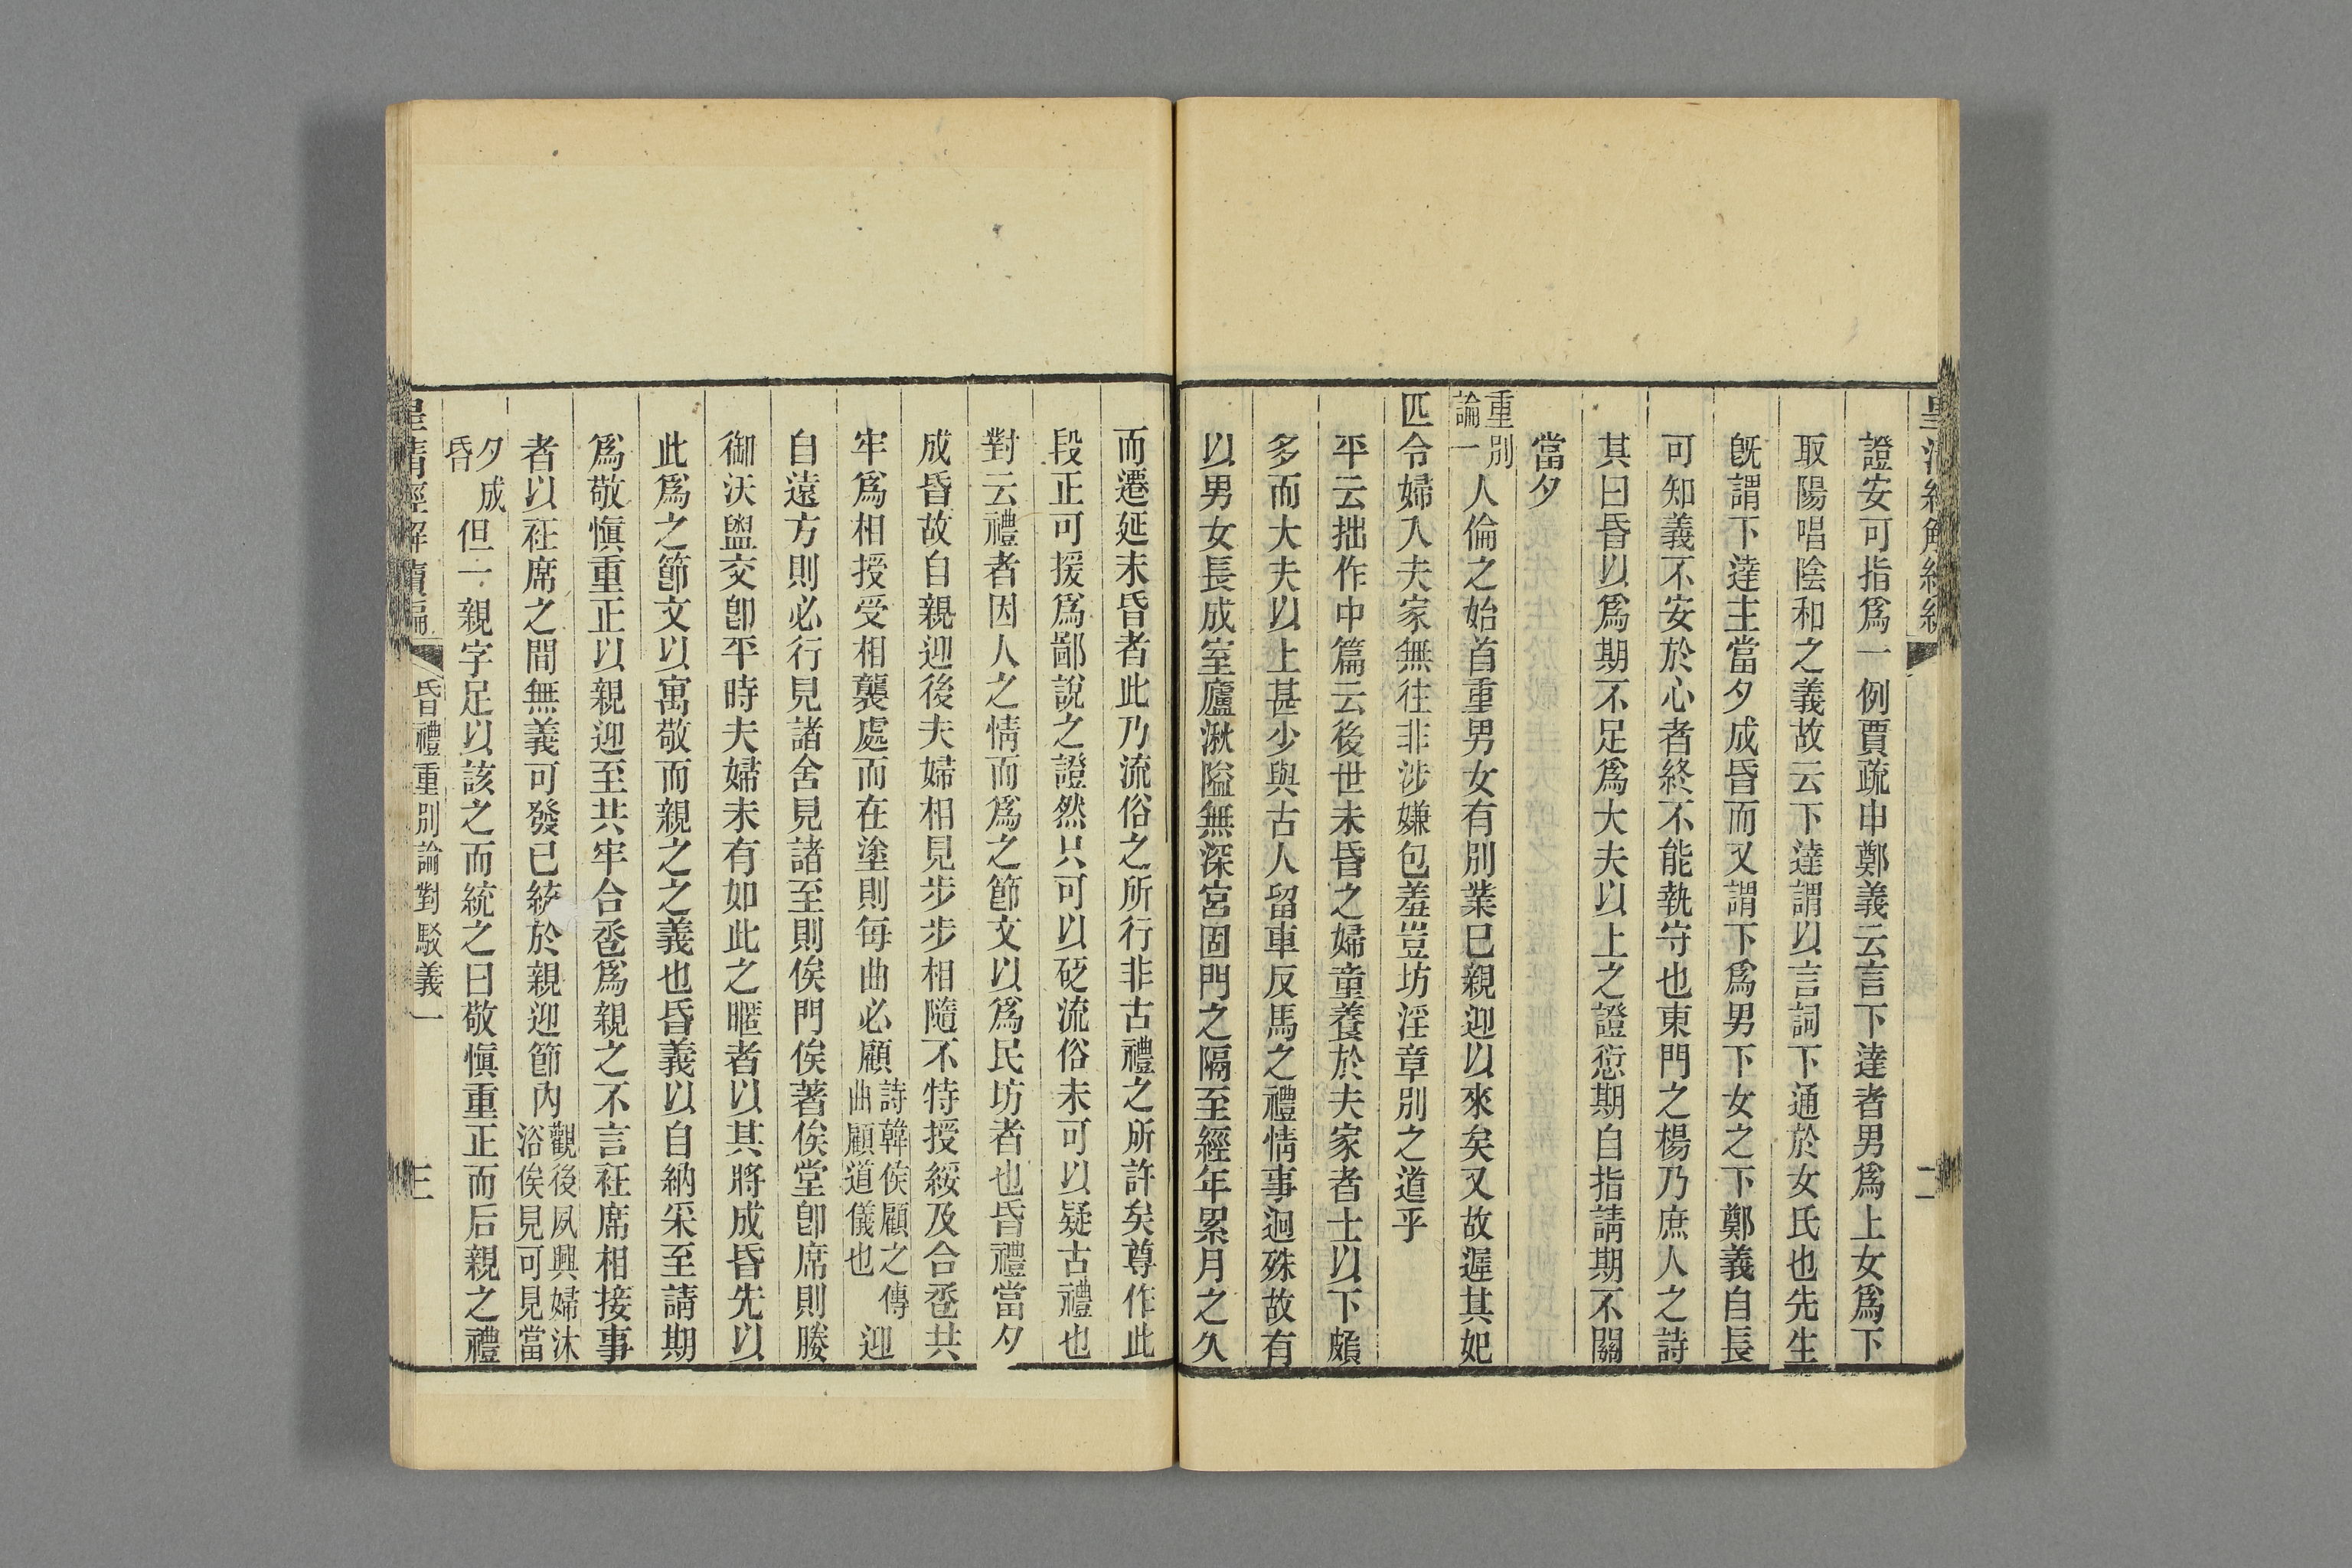 證安可指爲一例賈疏申鄭義云言下達者男爲上女爲下
取陽唱陰和之義故云下達謂以言詞下通於女氏也先生
旣謂下達主當夕成昏而又謂下爲男下女之下鄭義自長
可知義不安於心者終不能執守也東門之楊乃庶人之詩
其曰昏以爲期不足爲大夫以上之證愆期自指請期不關
當夕
重別論一人倫之始首重男女有別業已親迎以來矣又故遲其妃
匹令婦入夫家無往非涉嫌包羞豈坊淫章別之道乎
平云拙作中篇云後世未昏之婦童養於夫家者士以下頗
多而大夫以上甚少與古人留車反馬之禮情事迥殊故有
以男女長成室廬湫隘無深宮固門之隔至經年累月之久
而遷延未昏者此乃流俗之所行非古禮之所許矣尊作此
段正可援爲鄙說之證然只可以砭流俗未可以疑古禮也
對云禮者因人之情而爲之節文以爲民坊者也昏禮當夕
成昏故自親迎後夫婦相見步步相隨不特授綏及合巹共
牢爲相授受相襲處而在塗則每曲必顧詩韓侯顧之傳曲顧道儀也迎
自遠方則必行見諸舍見諸至則俟門俟著俟堂卽席則媵
御沃盥交卽平時夫婦未有如此之暱者以其將成昏先以
此爲之節文以寓敬而親之之義也昏義以自納采至請期
爲敬愼重正以親迎至共牢合巹爲親之不言衽席相接事
者以衽席之間無義可發已統於親迎節內觀後夙興婦沐浴俟見可見當
夕成昏但一親字足以該之而統之曰敬愼重正而后親之禮
皇清經解續編
昏禮重別論對駁義一
三